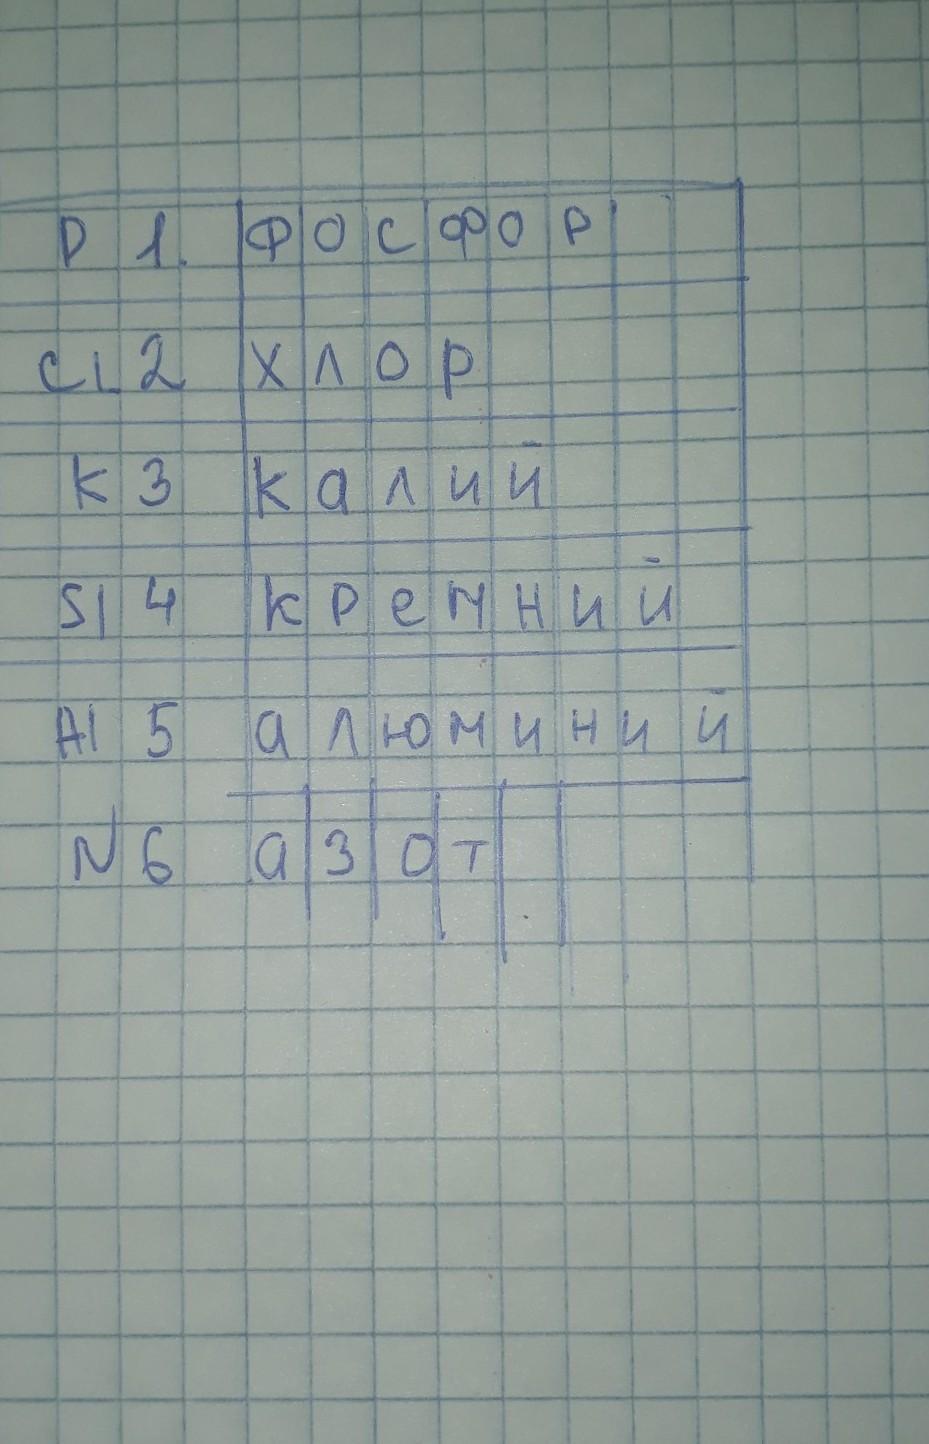 P 1. фосфор
Cl 2 хлор
K 3 калий
Si 4 кремний
Al 5 алюминий
N 6 азот